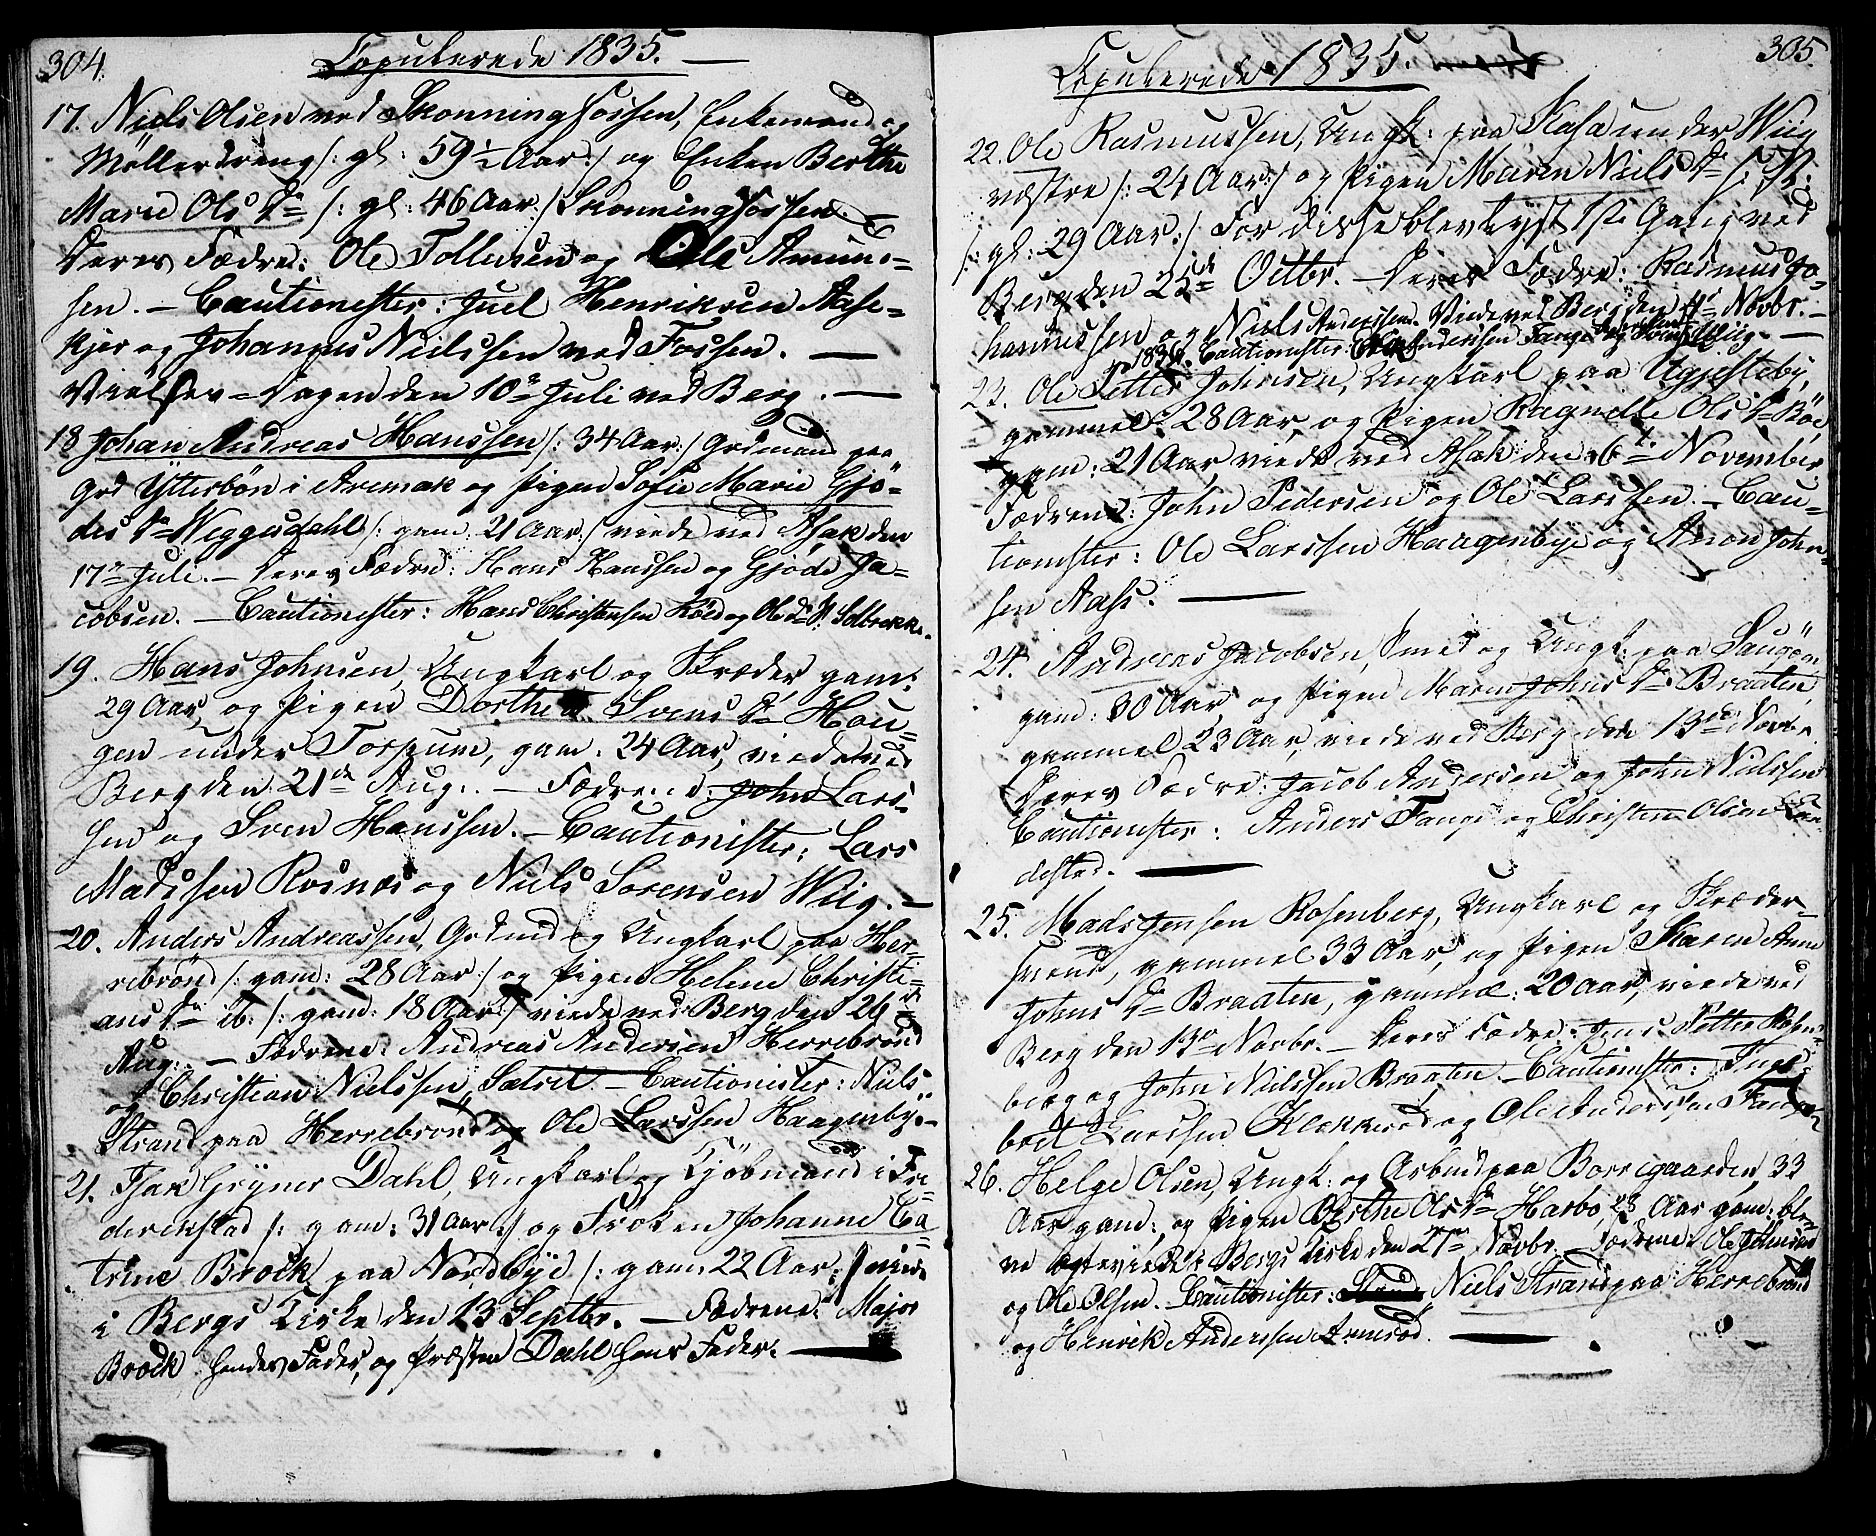 304. Copulerede 1835. —
17. Niels Olsen ved Skonningfossen, Enkemand og
Møllerdreng /: gl: 59½ Aar :/ og Enken Berthe
Marie Ols D. /: gl: 46 Aar :/ Skonningfossen.
Deres Fædre: Ole Tollevsen og Ole Amund-
sen. — Cautionister: Juel Henriksen Aase-
kjer og Johannes Nielssen ved Fossen. —
Vielses-Dagen den 10de Juli ved Berg. —
18 Johan Andreas Hanssen /: 34 Aar :/ Grdmand paa
Grd Ytterbøn i Aremak og Pigen Sofie Marie Gjø-
des D. Weggusdahl /: gam: 21 Aar :/ viede ved Asak den
17de Juli. — Deres Fædre: Hans Hanssen og Gjøde Ja-
cobsen. — Cautionister: Hans Christensen og Ole Solbrekke.
19. Hans Johnsen, Ungkarl og Skræder gam:
29 Aar, og Pigen Dorthea Svens D. Hou-
gen under Torpum, gam: 24 Aar, viede ved
Berg den 21de Aug: — Fædrene: John Lars-
sen og Sven Hanssen. — Cautionister: Lars
Madssen Rosnæs og Niels Sørensen Wiig. —
20. Anders Andreassen, Grdmd og Ungkarl paa Her-
rebrønd /: gam: 28 Aar :/ og Pigen Helene Christi-
ans D. ib: /: gam: 18 Aar :/ viede ved Berg den 26de
Aug: — Fædrene: Andreas Andersen Herrebrønd
og Christian Nielssen Sætret — Cautionister: Niels
Strand paa Herrebrønd og Ole Larssen Haagenbye —
21. Isak Grÿner Dahl, Ungkarl og Kjøbmand i Fre-
derikstad /: gam: 31 Aar :/ og Frøken Johanne Ca-
trine Brock paa Nordbye /: gam: 22 Aar :/ viede
i Bergs Kirke den 13 Septbr. — Fædrene: Major
Brock hendes Fader, og Præsten Dahl hans Fader. —
305
Copulerede 1835.
22. Ole Rasmussen, Ungk: paa Kasa under Wiig
væstre /: 24 Aar :/ og Pigen Maren Niels D.
/: gl: 29 Aar :/ For disse blev lyst 1ste Gang ved
Berg den 25de Octbr. — Deres Fædre: Rasmus Jo-
hannessen og Niels Anderssen. Viede ved Berg den Novbr. —
1836. Cautionister: Anderssen Tange og Wiig. —
23. Ole Petter Johnsen, Ungkarl paa Ugjesteby,
gammel 28 Aar, og Pigen Ragnille Ols D. Bøe
gam: 21 Aar viede ved Asak den 6te November
Fædrene: John Pedersen og Ole Larssen. — Cau-
tionister: Ole Larssen Haagenbye og Anon John-
sen Aase. —
24. Andreas Jacobsen, Smed og Ungk: paa Saugøen
gam: 30 Aar og Pigen Maren Johns D. Braaten
gammel 23 Aar, viede ved Berg den 13de Novbr.
Deres Fædre: Jacob Andersen og John Nielssen
Cautionister: Anders Tange og Christen Olsen Lun-
destad. —
25. Mads Jensen Rosenberg, Ungkarl og Skræder-
svend, gammel 33 Aar, og Pigen Karen Anne
Johns D. Braaten, gammel: 20 Aar, viede ved
Berg den 13de Novbr. — Deres Fædre: Jens Petter Rosen-
berg og John Nielssen Braaten. — Cautionister: Inge-
bret Larssen Klekkerød og Ole Anderssen Tange
26. Helge Olsen, Ungk: og Arbmd paa Borregaarden 33
Aar gam:, og Pigen Berthe Ols D. Harbo, 23 Aar gam: ble-
ve ægteviede i Bergs Kirke den 27de Novbr. — Fædrene: Ole Johnsen
og Ole Olsen. Cautionister: Niels Strand paa Herrebrønd
og Henrik Anderssen Armerød. —